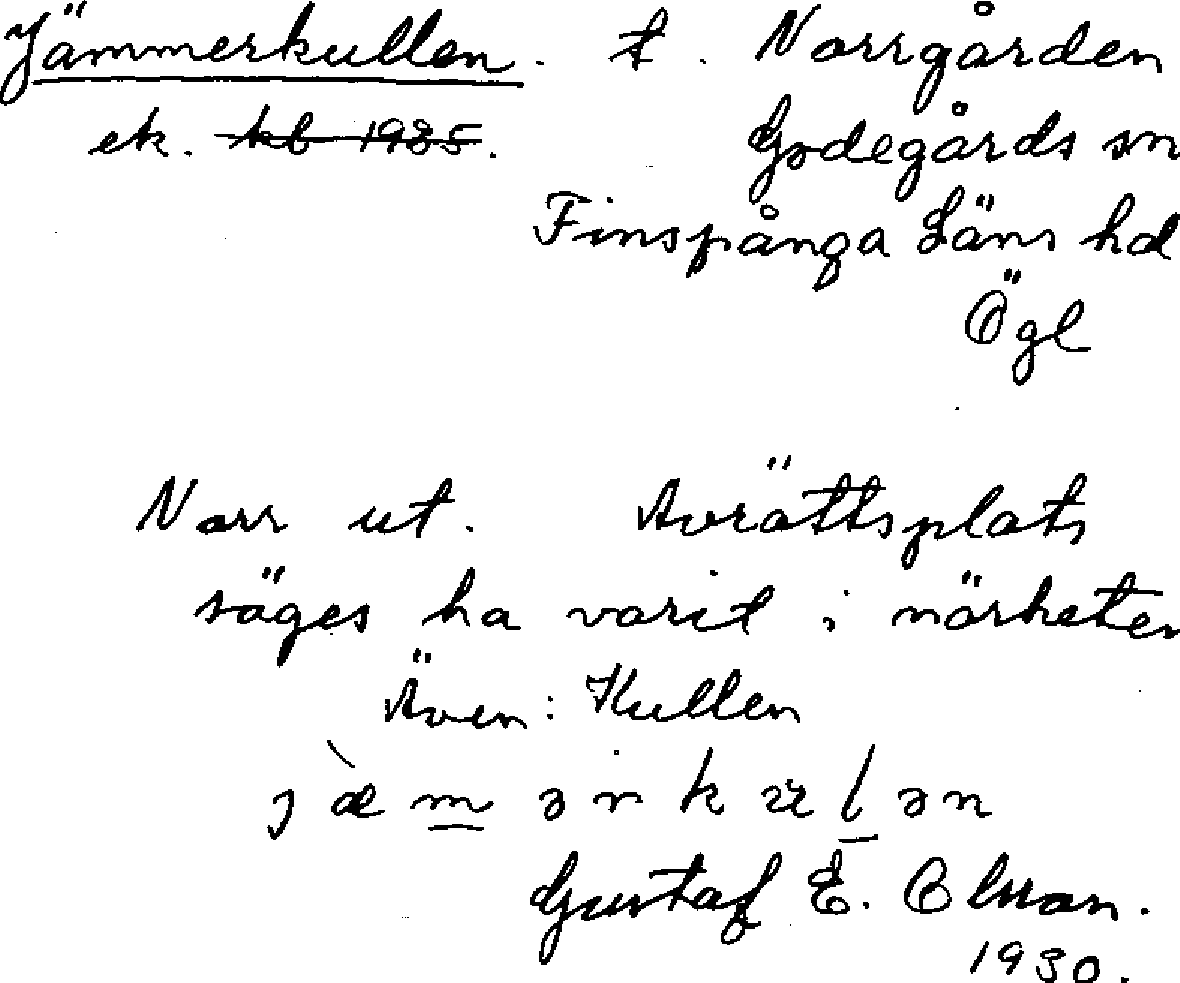 Jämmerkullen. t. Norrgården
ek. kb 1935. Godegårds sn
Finspånga Läns hd
Ögl
Norr ut. Avrättsplats
säges ha varit i närheten
Även: Kullen
Gustaf E. Olsson.
1930.